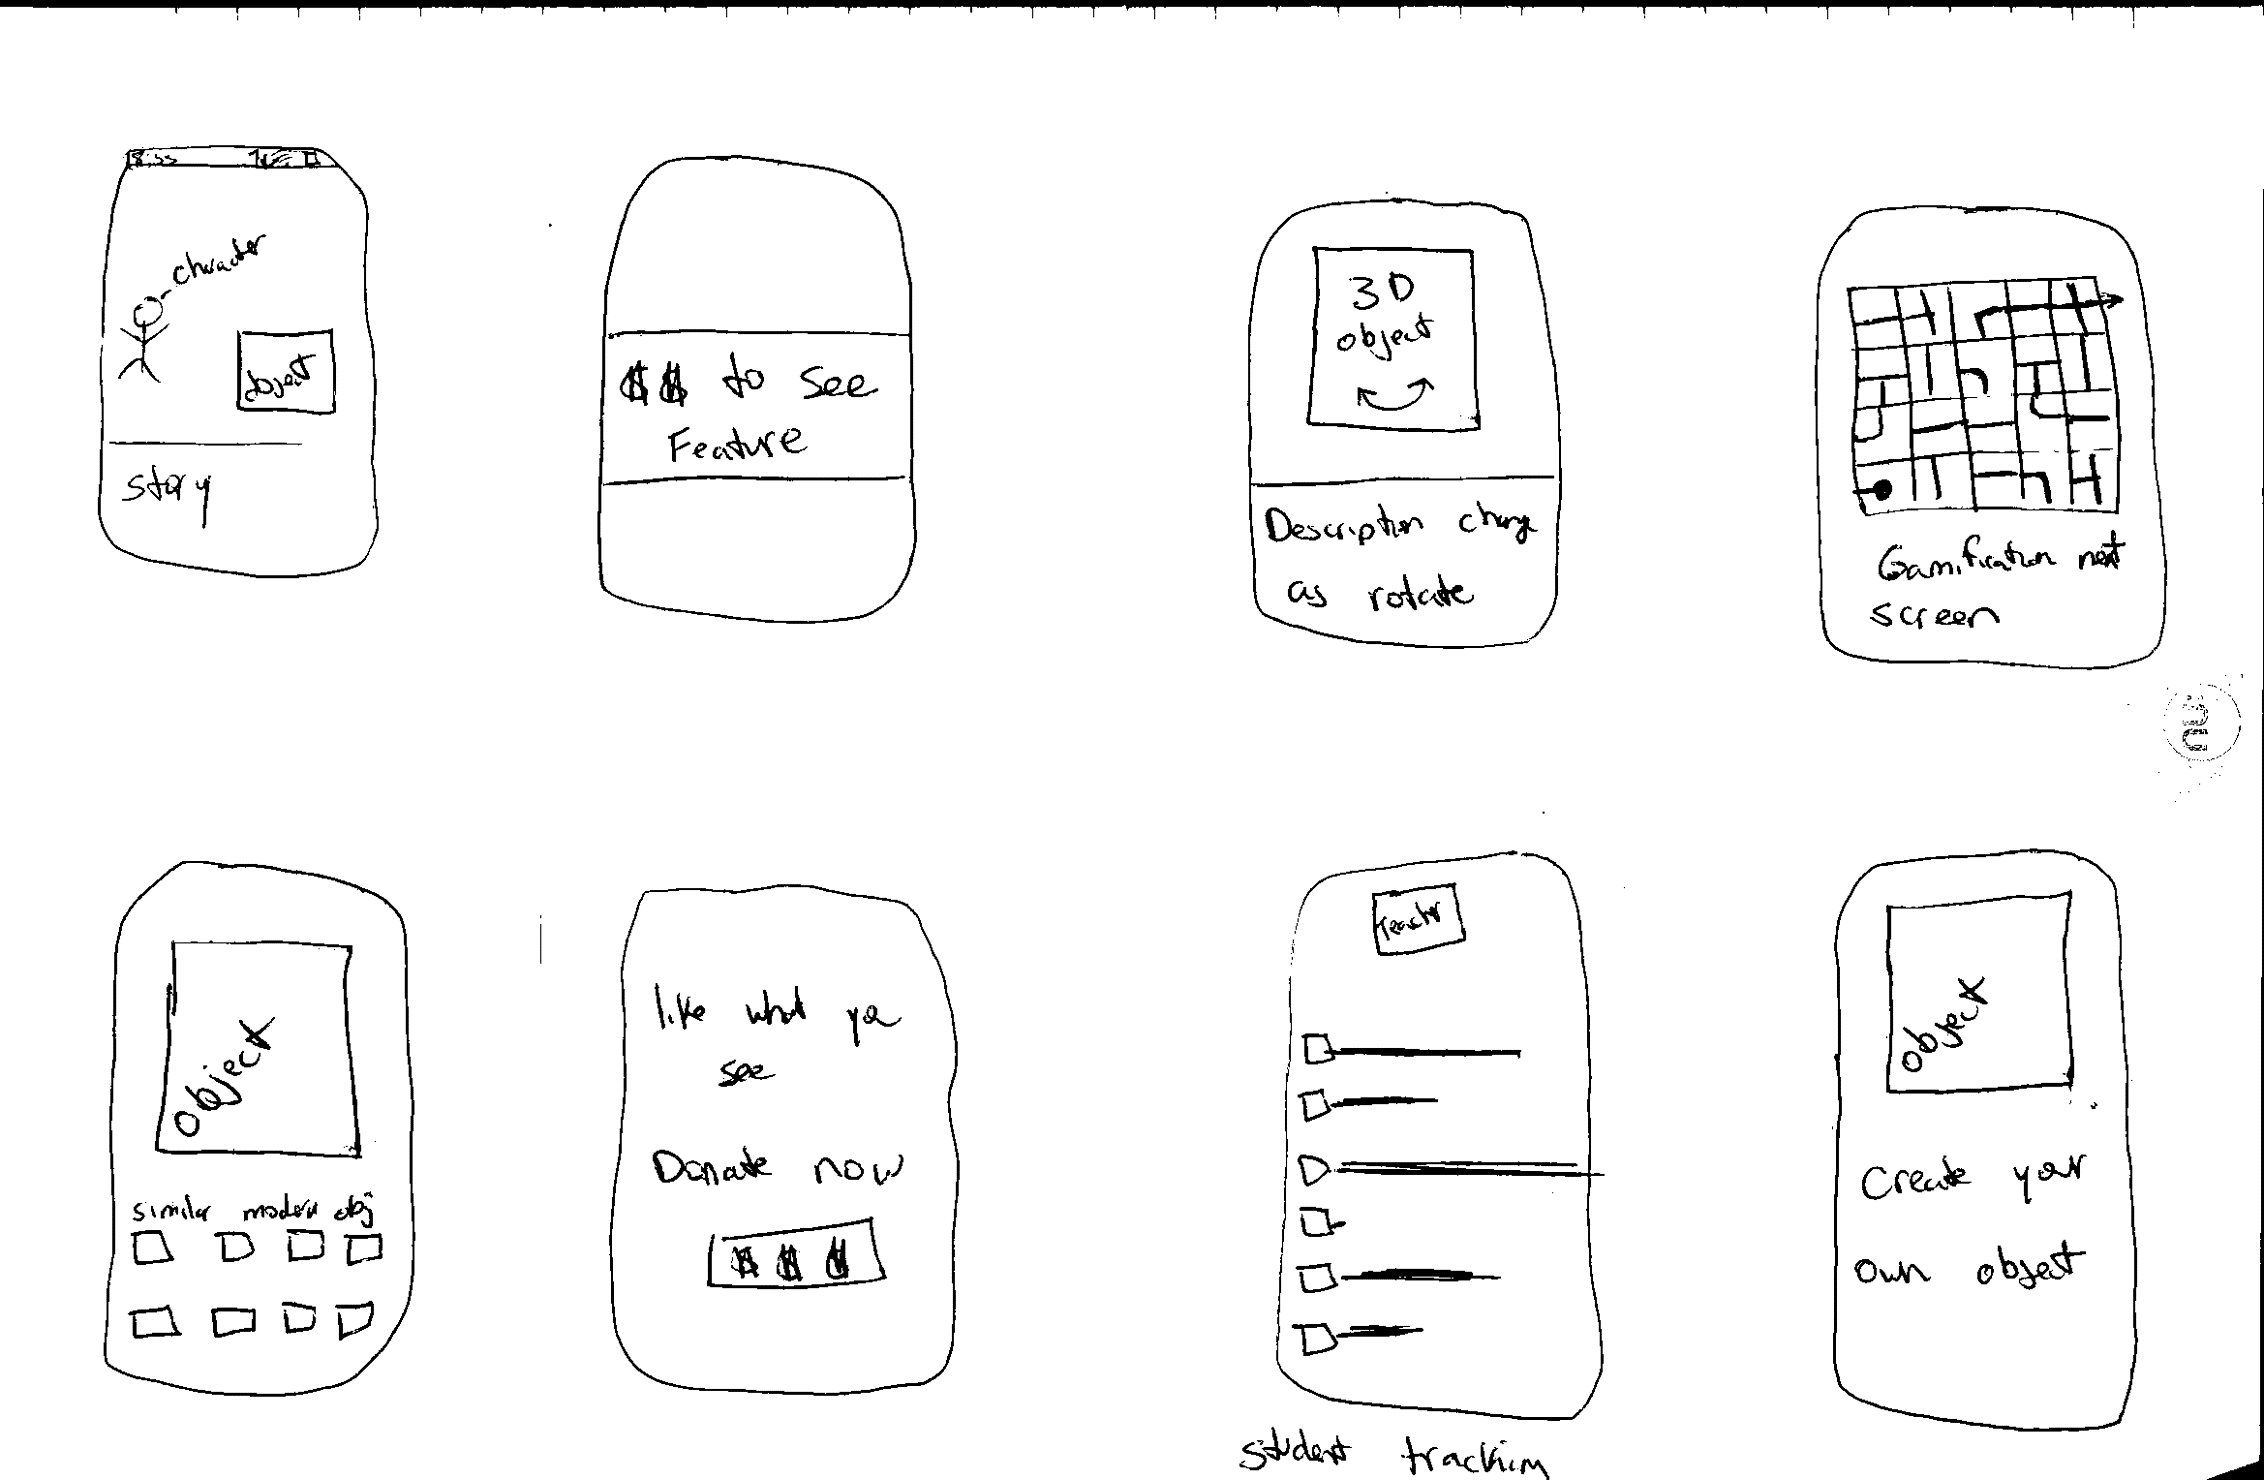 8:55
character
object
story
$$ to see
Feature
3D
object
Description change
as rotate
Gamification next
screen
object
similar modern obj
like what you
see
Donate now
$ $ $
Teacher
student tracking
object
Create your
own object